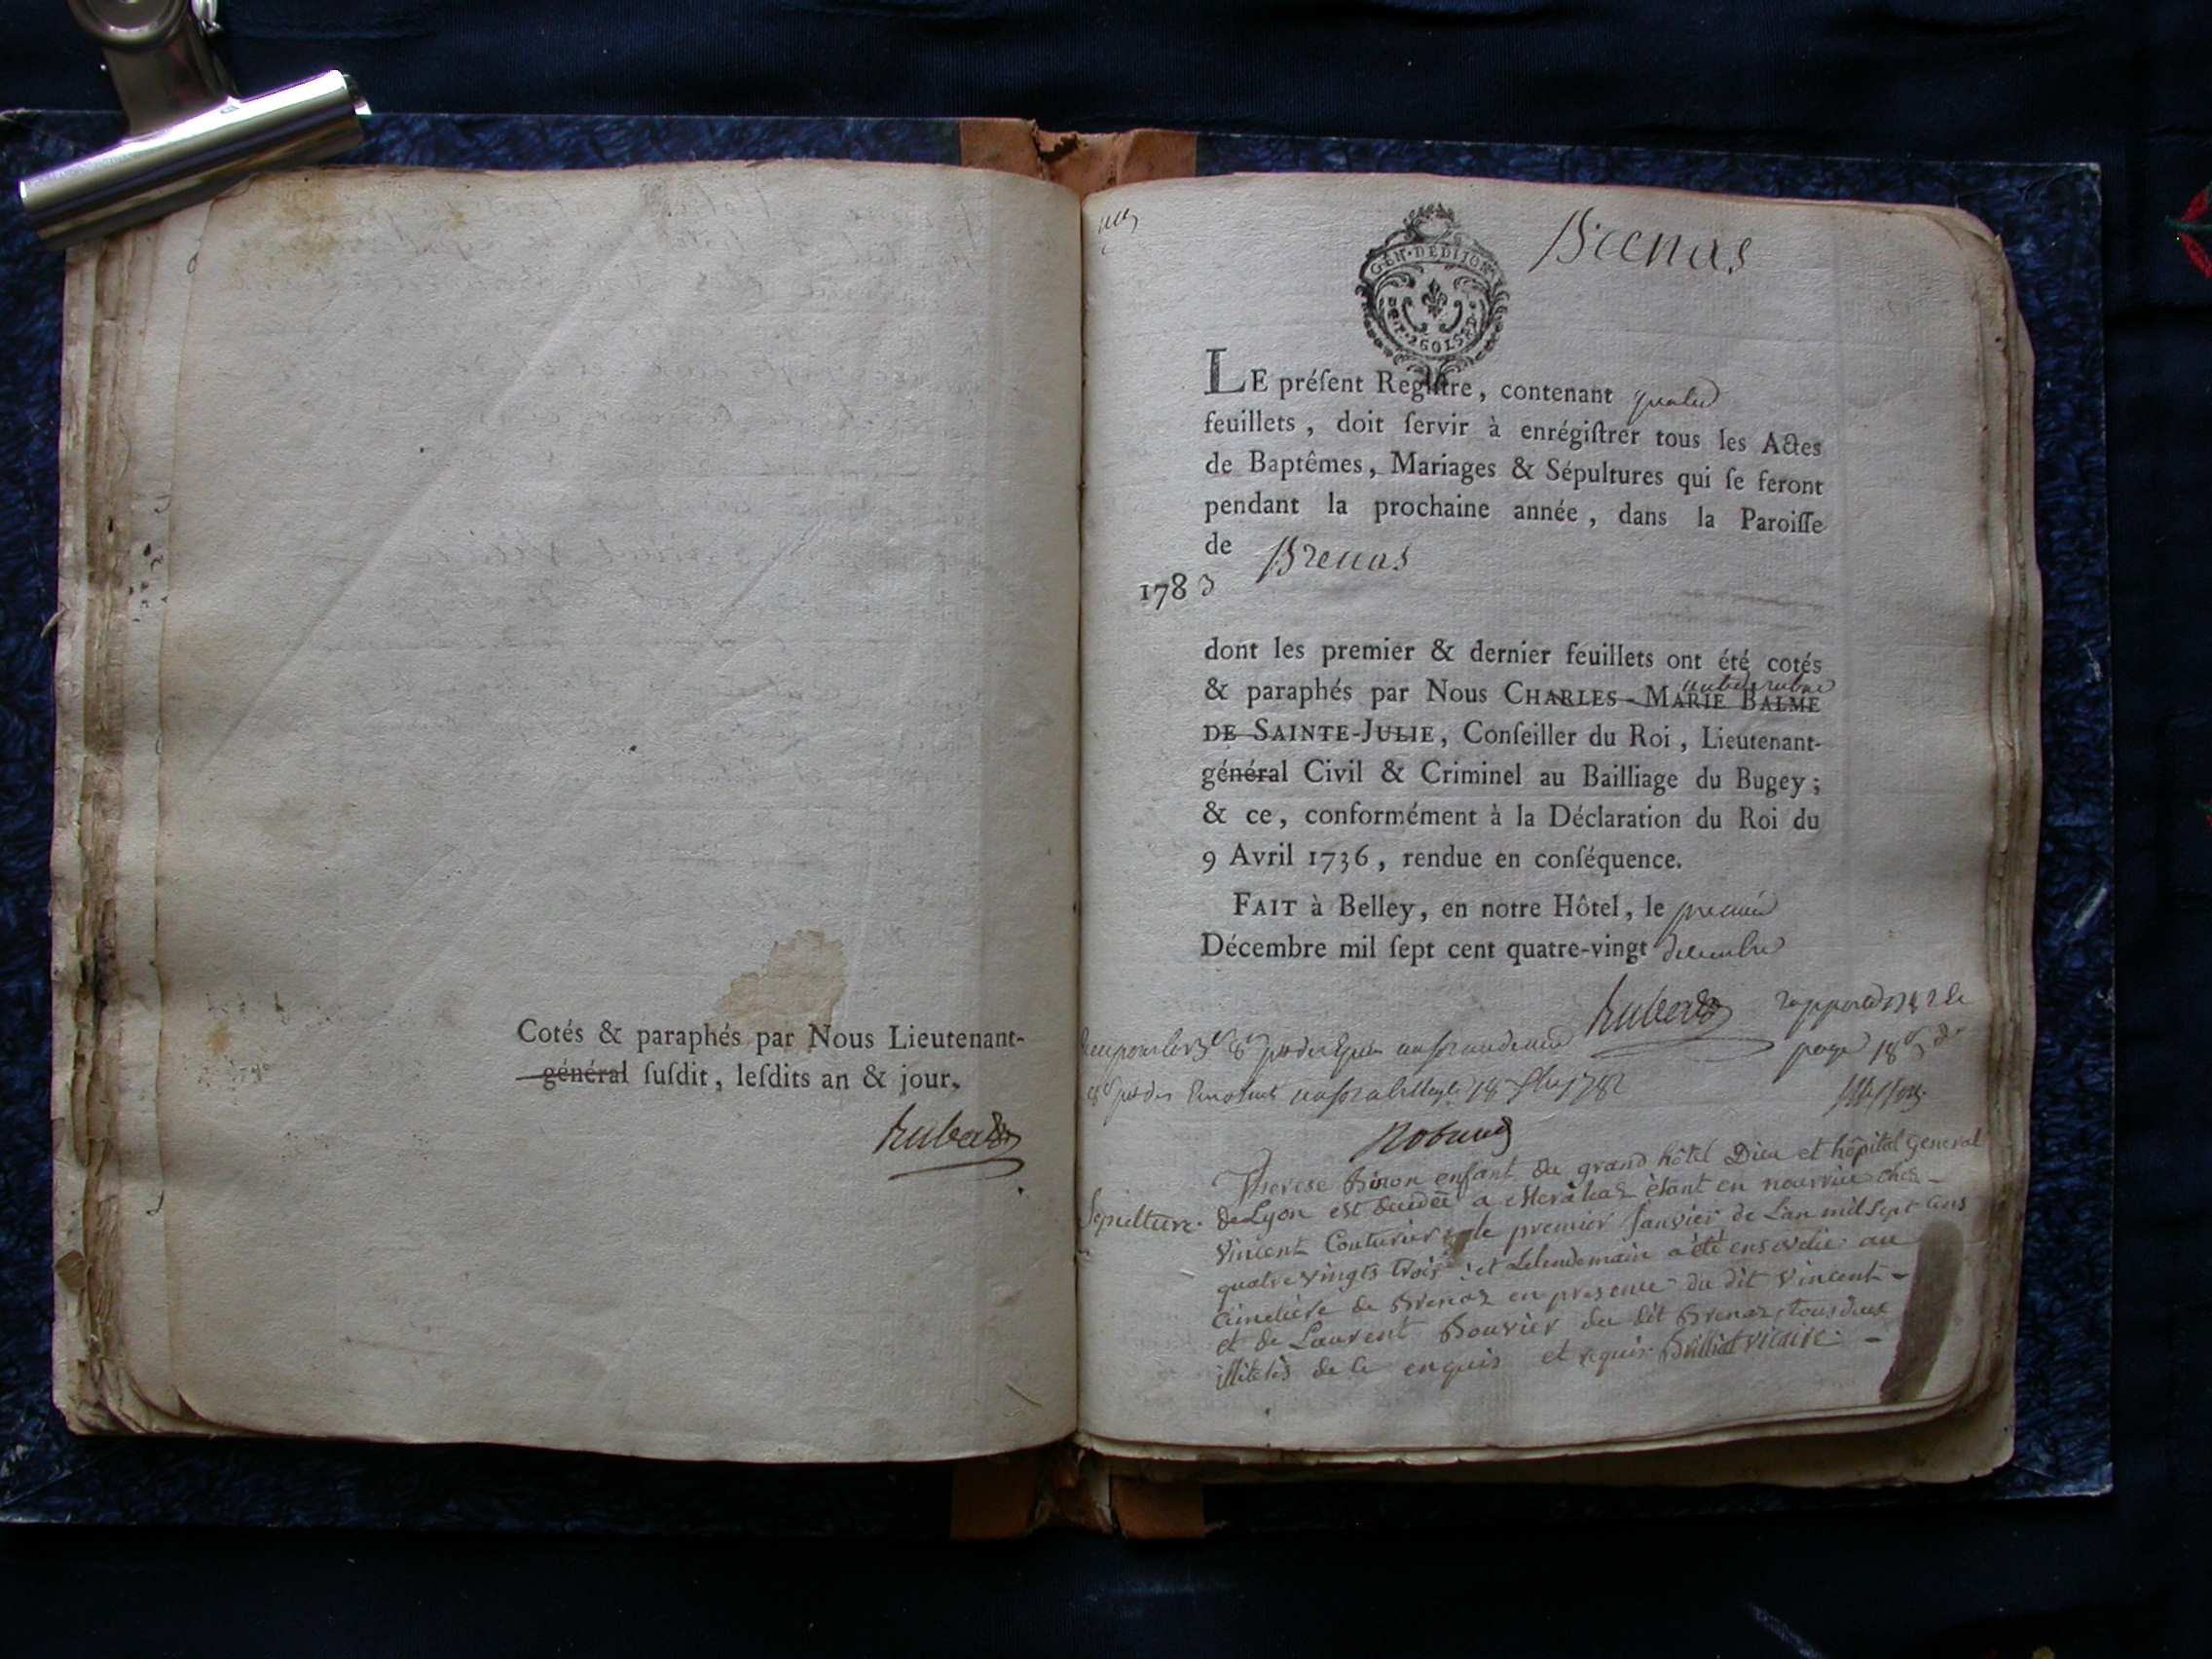 Cotés & paraphés par Nous Lieutenant-
général ſuſdit, leſdits an & jour.
Brenas
GEN·DE DIJON
LE préſent Regiſtre, contenant quatre
feuillets, doit ſervir à enrégiſtrer tous les Actes
de Baptêmes, Mariages & Sépultures qui ſe feront
pendant la prochaine année, dans la Paroiſſe
de Brenas
1783
dont les premier & dernier feuillets ont été cotés
& paraphés par Nous CHARLES-MARIE BALME
DE SAINTE-JULIE, Conſeiller du Roi, Lieutenant-
général Civil & Criminel au Bailliage du Bugey;
& ce, conformément à la Déclaration du Roi du
9 Avril 1736, rendue en conſéquence.
FAIT à Belley, en notre Hôtel, le premier
Décembre mil ſept cent quatre-vingt decembre
Sepulture.
Therese Biron enfant du grand hôtel Dieu et hôpital general
de Lyon est decedeé a étant en nourrice chés
Vincent Couturier le premier Janvier de L'an mil sept cens
quatre vingts trois et Lelendemain a été ensevelie au
Cimetiére de Brenaz en presence du dit Vincent
et de Laurent Bouvier du dit Brenaz tous deux
illiterés de ce enquis et requis. Brilliat vicaire.